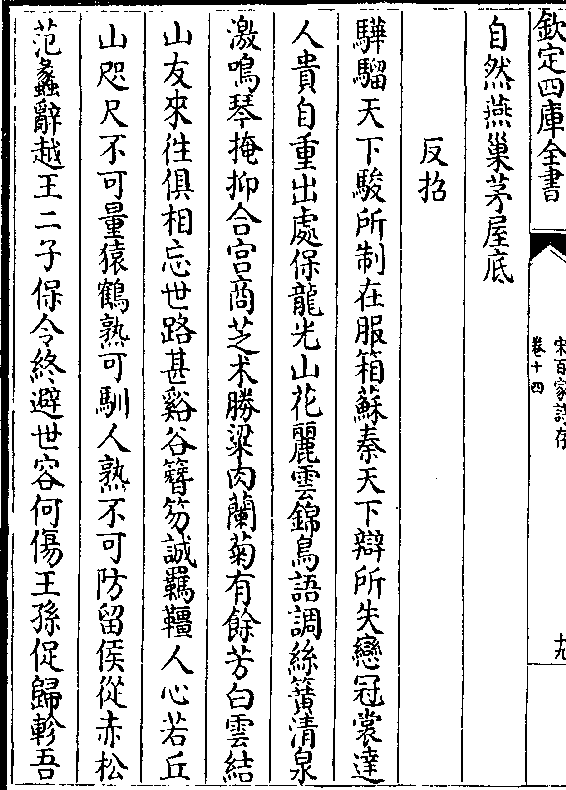 欽定四庫全書
宋百家詩存
卷十四
十九
自然燕巢茅屋底
反招
驊騮天下駿所制在服箱蘇秦天下辯所失戀冠裳達
人貴自重出處保龍光山花麗雲錦鳥語調絲簧清泉
激鳴琴掩抑合宮商芝术勝粱肉蘭菊有餘芳白雲結
山友來徃俱相忘世路甚谿谷簪笏誠羈韁人心若丘
山咫尺不可量猿鶴熟可馴人熟不可防留侯從赤松
范蠡辭越王二子保令終避世容何傷王孫促歸軫吾